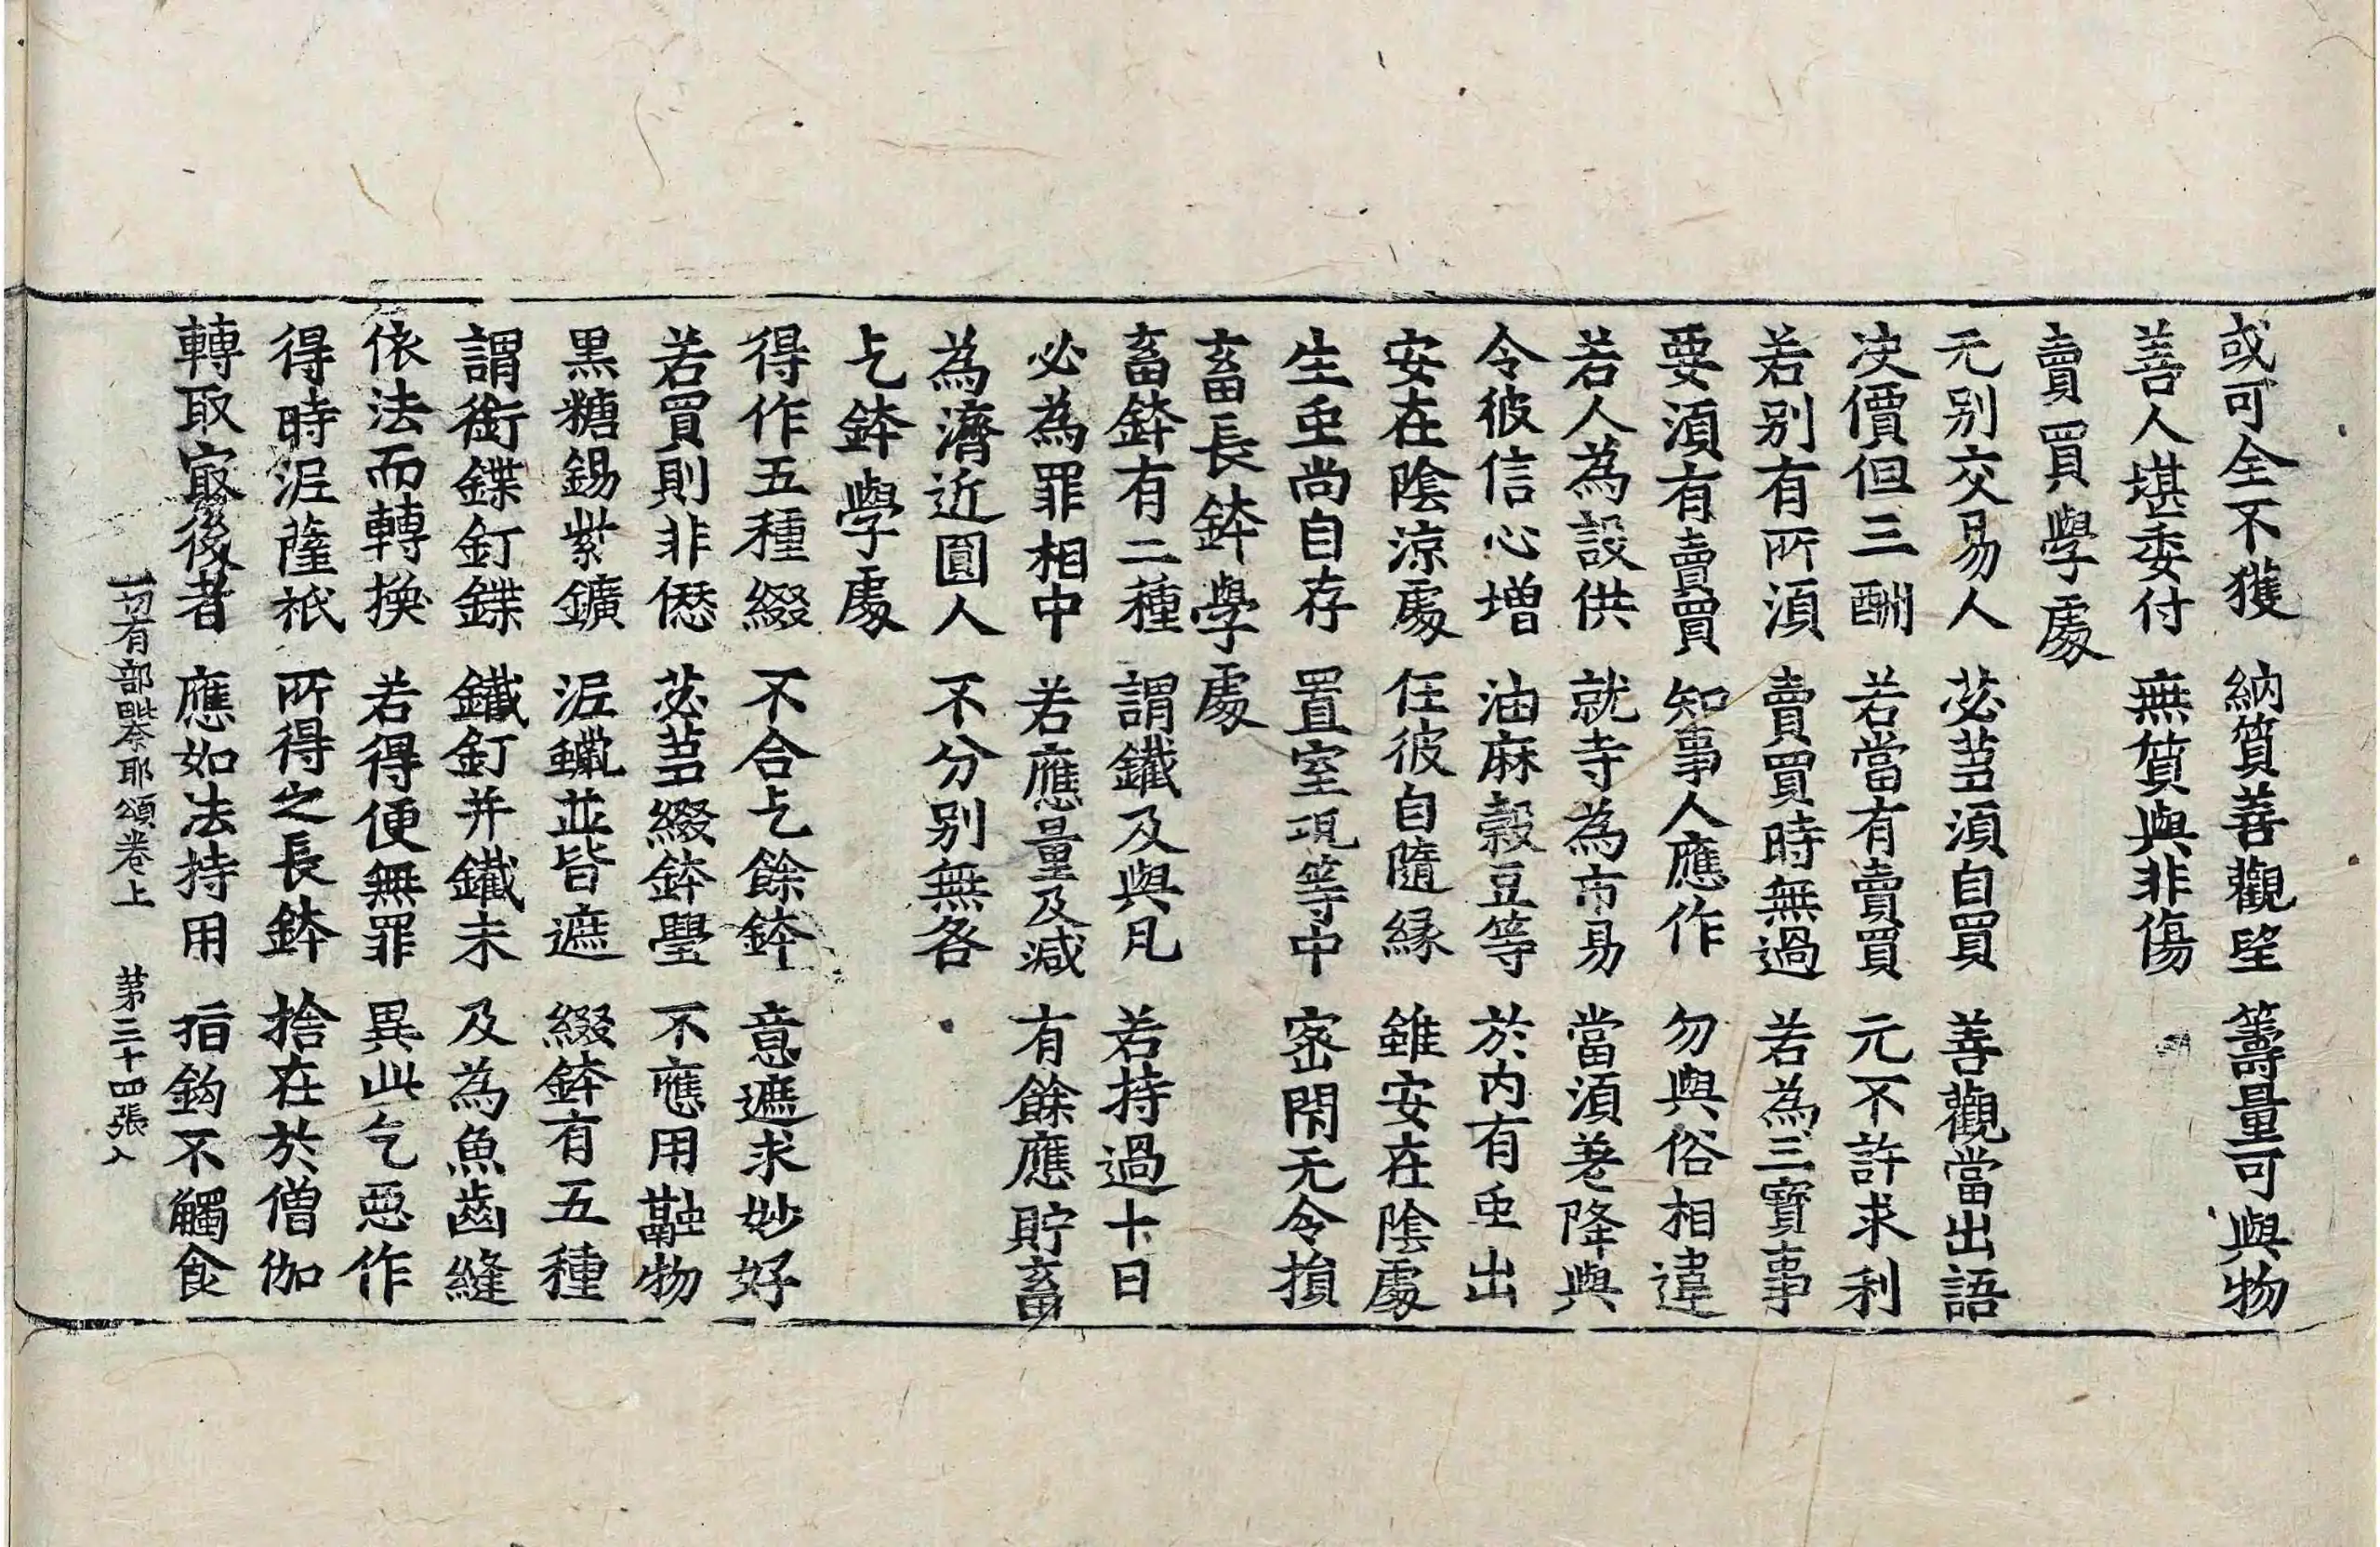 或可全不獲 納質善觀望 籌量可與物
善人堪委付 無質與非傷
賣買學處
元别交易人 苾芻湏自買 善觀當出語
决價但三酬 若當有賣買 元不許求利
若别有所湏 賣買時無過 若為三寶事
要湏有賣買 知事人應作 勿與俗相違
若人為設供 就寺為市易 當湏差降與
令彼信心增 油麻穀豆等 於内有虫出
安在陰涼處 任彼自隨縁 雖安在陰處
生虫尚自存 置室現等中 密閇无令損
畜長鉢學處
畜鉢有二種 謂鐵及與凡 若持過十日
必為罪相中 若應量及減 有餘應貯畜
為濟近圓人 不分别無咎
乞鉢學處
得作五種綴 不合乞餘鉢 意遮求妙好
若買則非愆 苾芻綴鉢璺 不應用融物
黒糖錫紫鑛 泥蠟並皆遮 綴鉢有五種
謂銜鍱釘鍱 鐵釘并鐵末 及為魚齒縫
依法而轉換 若得便無罪 異此乞惡作
得時泥薩祇 所得之長鉢 捨在於僧伽
轉取㝡後者 應如法持用 指鈎不觸食
一切有部毗奈耶頌卷上 第三十四張 入